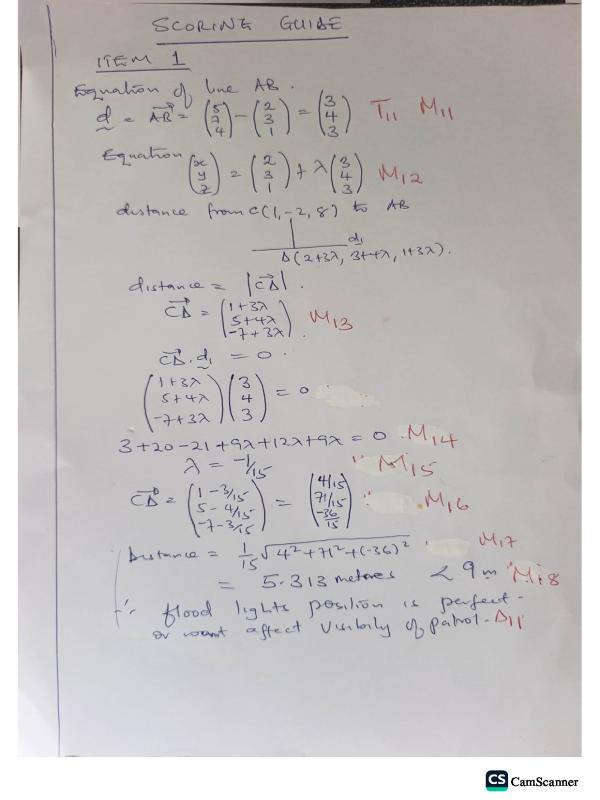 SCORING GUIDE
ITEM 1
Equation of line AB.
d = AB = (5 7 4) - (2 3 1) = (3 4 3) T11 M11
Equation (x y z) = (2 3 1) + λ(3 4 3) M12
distance from C(1, -2, 8) to AB
d1
Δ(2+3λ, 3+4λ, 1+3λ).
distance = |CΔ|.
CΔ = (1+3λ 5+4λ -7+3λ) M13
CΔ. d1 = 0.
(1+3λ 5+4λ -7+3λ)(3 4 3) = 0
3+20-21+9λ+12λ+9λ = 0. M14
λ = -1/15 M15
CΔ = (1-3/15 5-4/15 -7-3/15) = (4/15 71/15 -36/15) M16
Distance = 1/15 √4²+71²+(-36)² M17
= 5.313 metres < 9m M18
∴ flood lights position is perfect.
or wont affect visibility of patrol. Δ11
CS CamScanner